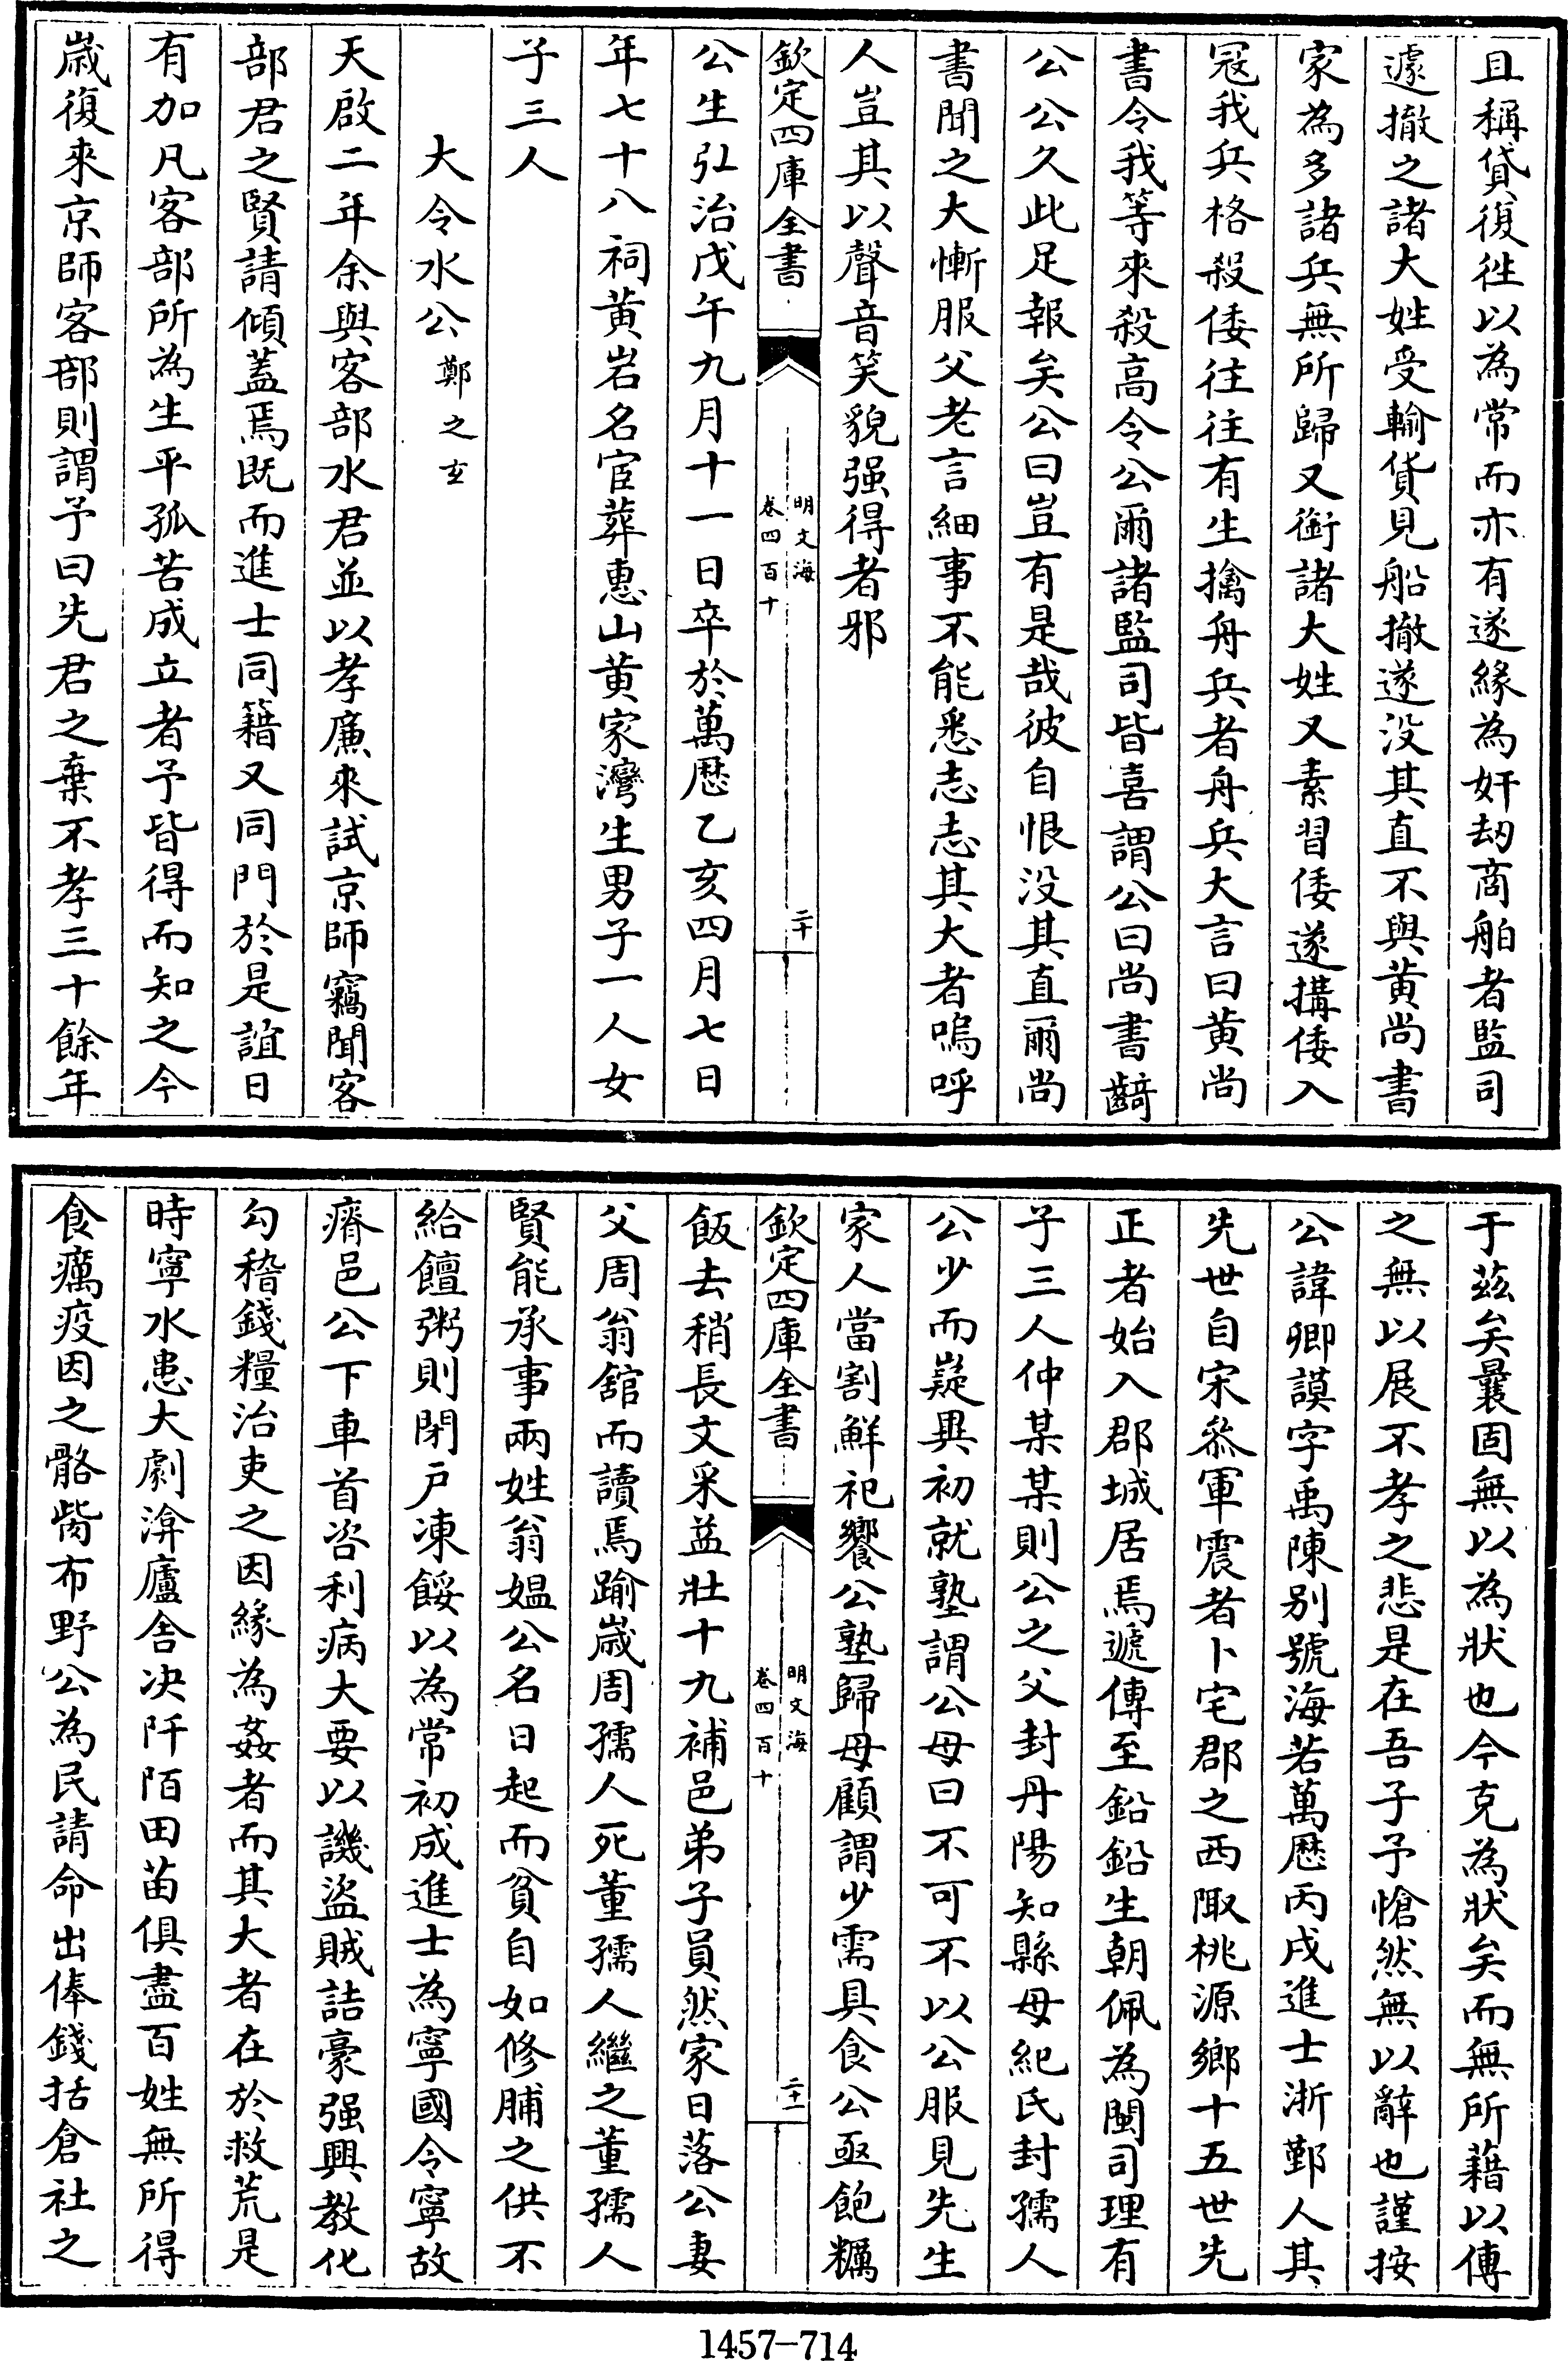 且稱貸復徃以為常而亦有遂緣為奸刼商舶者監司
遽撤之諸大姓受輸貨見船撤遂没其直不與黄尚書
家為多諸兵無所歸又銜諸大姓又素習倭遂搆倭入
冦我兵格殺倭往往有生擒舟兵者舟兵大言曰黄尚
書令我等來殺高令公爾諸監司皆喜謂公曰尚書齮
公公久此足報矣公曰豈有是哉彼自恨没其直爾尚
書聞之大慚服父老言細事不能悉志志其大者嗚呼
人豈其以聲音笑貌强得者邪
欽定四庫全書
明文海
卷四百十
二十
公生弘治戊午九月十一日卒於萬厯乙亥四月七日
年七十八祠黄岩名宦葬惠山黄家灣生男子一人女
子三人
大令水公鄭之玄
天啟二年余與客部水君並以孝廉來試京師竊聞客
部君之賢請傾蓋焉既而進士同籍又同門於是誼日
有加凡客部所為生平孤苦成立者予皆得而知之今
歲復來京師客部則謂予曰先君之棄不孝三十餘年
于茲矣曩固無以為狀也今克為狀矣而無所藉以傳
之無以展不孝之悲是在吾子予愴然無以辭也謹按
公諱卿謨字禹陳别號海若萬厯丙戌進士浙鄞人其
先世自宋叅軍震者卜宅郡之西陬桃源鄉十五世先
正者始入郡城居焉遞傳至鉛鉛生朝佩為閩司理有
子三人仲某某則公之父封丹陽知縣母紀氏封孺人
公少而嶷異初就塾謂公母曰不可不以公服見先生
家人當割鮮祀饗公塾歸母顧謂少需具食公亟飽糲
欽定四庫全書
明文海
卷四百十
二十一
飯去稍長文采益壯十九補邑弟子員然家日落公妻
父周翁舘而讀焉踰歲周孺人死董孺人繼之董孺人
賢能承事兩姓翁媼公名日起而貧自如修脯之供不
給饘粥則閉戸凍餒以為常初成進士為寧國令寧故
瘠邑公下車首咨利病大要以譏盜賊詰豪强興教化
勾稽錢糧治吏之因緣為姦者而其大者在於救荒是
時寧水患大劇渰廬舎决阡陌田苗俱盡百姓無所得
食癘疫因之骼胔布野公為民請命出俸錢括倉社之
1457-714